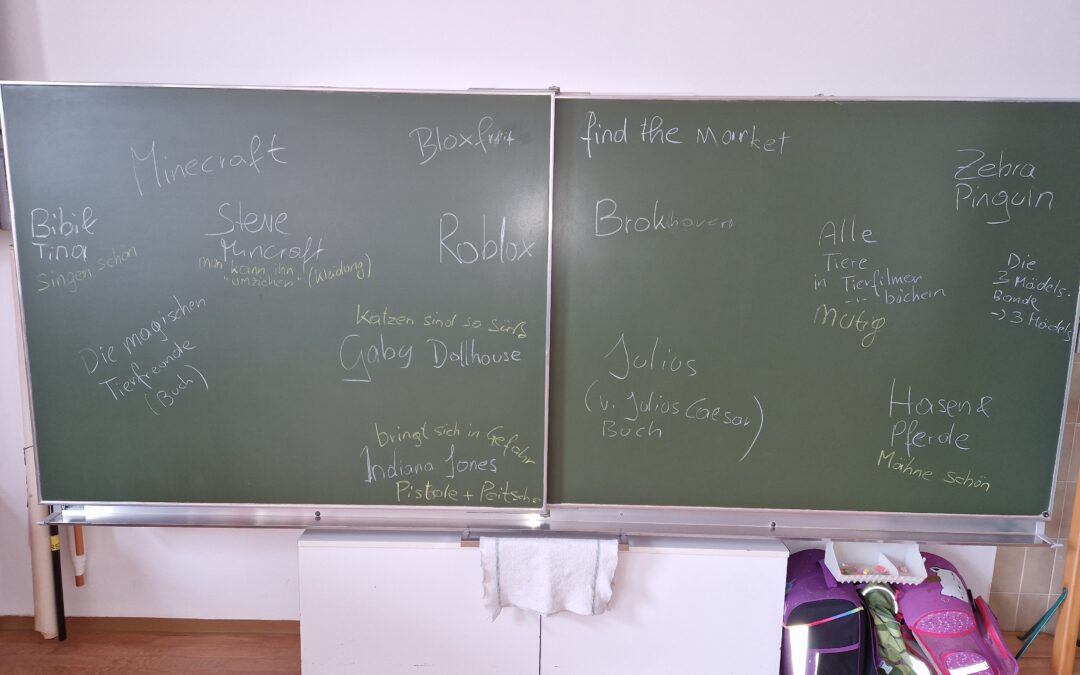 Minecraft
Bloxfruit
Bibi &
Tina
Singen schön
Steve
Muncraft
man kann ihn
"umziehen" (Kleidung)
Roblox
Die magischen
Tierfreunde
(Buch)
Katzen sind so süß
Gaby Dollhouse
bringt sich in Gefahr
Indiana Jones
Pistole + Peitsche
find the Market
Zebra
Pinguin
Brokhaven
Alle
Tiere
in Tierfilmen
büchern
Mutig
Die
3 Mädels-
Bande
-> 3 Mädels
Julius
(v. Julius Caesar)
Buch
Hasen &
Pferde
Mähne schön